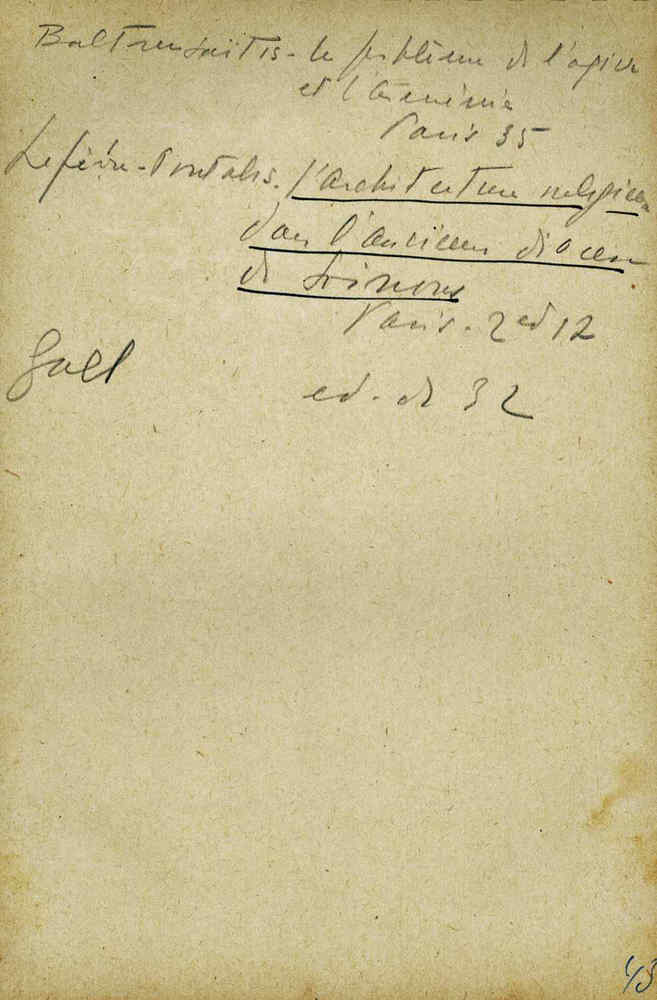 Baltrusaitis - le problème de l'ogive
et l'Arménie
Paris 35
Lefèvre-Pontalis. l'architecture religieuse
dans l'ancien diocèse
de Soissons
Paris. 2 ed 12
Gall
ed. de 32
43